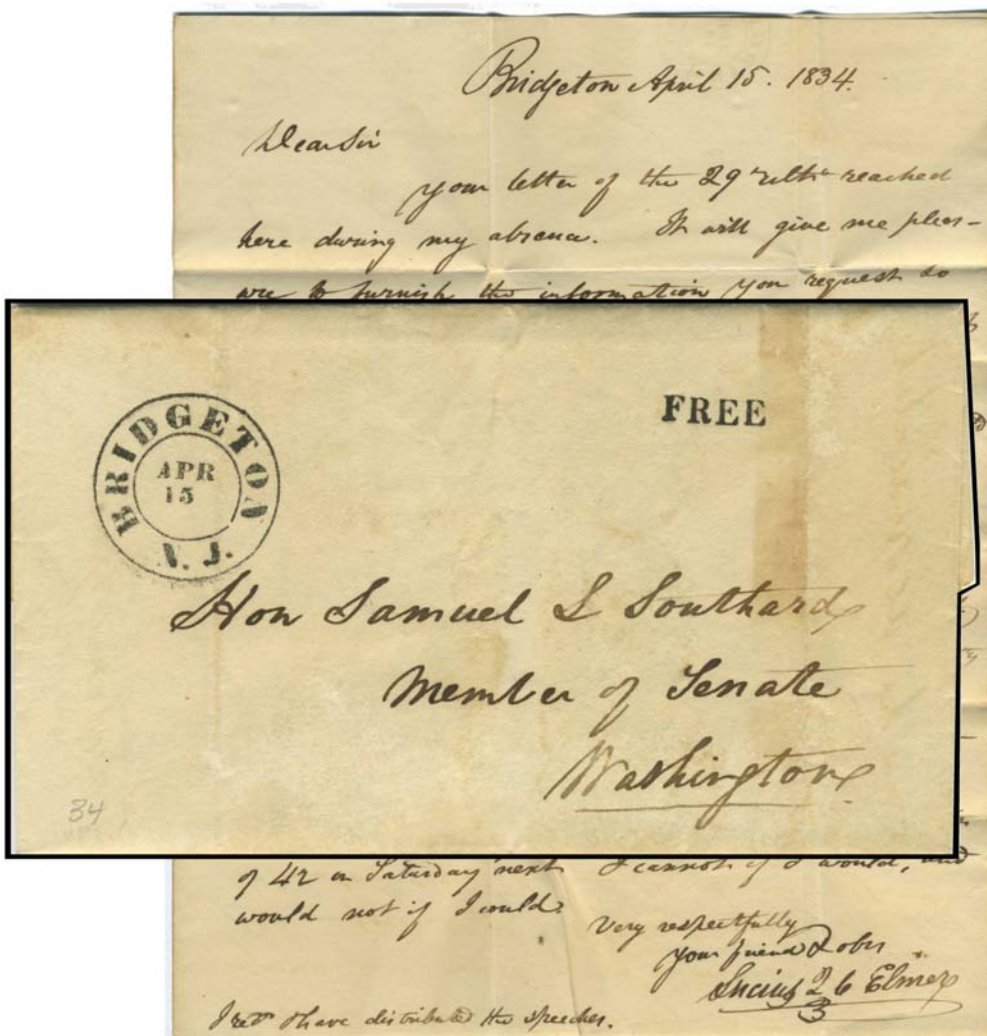 Bridgeton April 15. 1834.
Dear Sir
your letter of the 29th ulto reached
here during my absence. It will give me pleas-
ure to furnish the information you request so
BRIDGETON
APR
15
N. J.
FREE
Hon Samuel L Southard
Member of Senate
Washington
34
of 42 on Saturday next I cannot if I would, and
would not if I could.
Very respectfully
your friend & obr
Lucius Q C Elmer
I recd & have distributed the speeches.